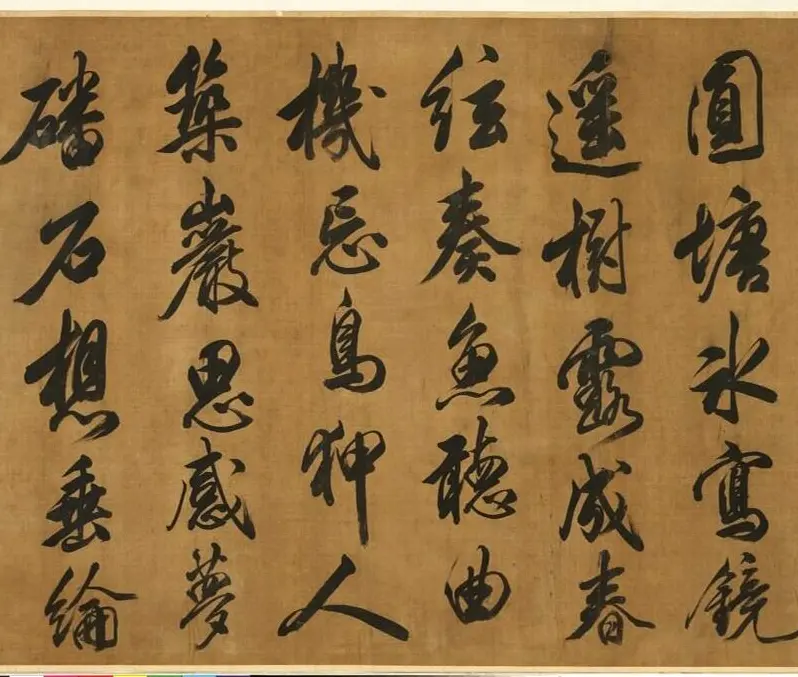 圓塘冰寫鏡
遥樹露成春
絃奏魚聽曲
機忘鳥狎人
築巖思感夢
磻石想垂綸